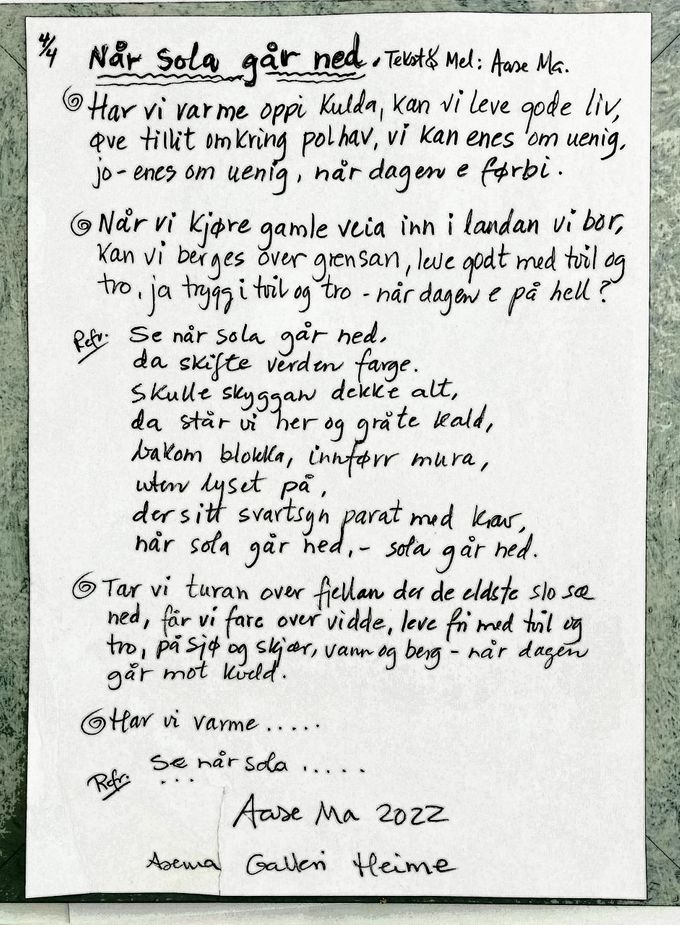 4/4 Når sola går ned. Tekst & Mel: Aase Ma.
Har vi varme oppi kulda, kan vi leve gode liv,
øve tillit omkring polhav, vi kan enes om uenig,
jo-enes om uenig, når dagen e førbi.
Når vi kjøre gamle veia inn i landan vi bor,
kan vi berges over grensan, leve godt med tvil og
tro, ja trygg i tvil og tro - når dagen e på hell?
Refr: Se når sola går ned,
da skifte verden farge.
Skulle skyggan dekke alt,
da står vi her og gråte kald,
bakom blokka, innførr mura,
uten lyset på,
der sitt svartsyn parat med krav,
når sola går ned, - sola går ned.
Tar vi turan over fjellan der de eldste slo sæ
ned, får vi fare over vidde, leve fri med tvil og
tro, på sjø og skjær, vann og berg - når dagen
går mot kveld.
Har vi varme .....
Refr: Se når sola .....
...
Aase Ma 2022
Asema Galleri Heime